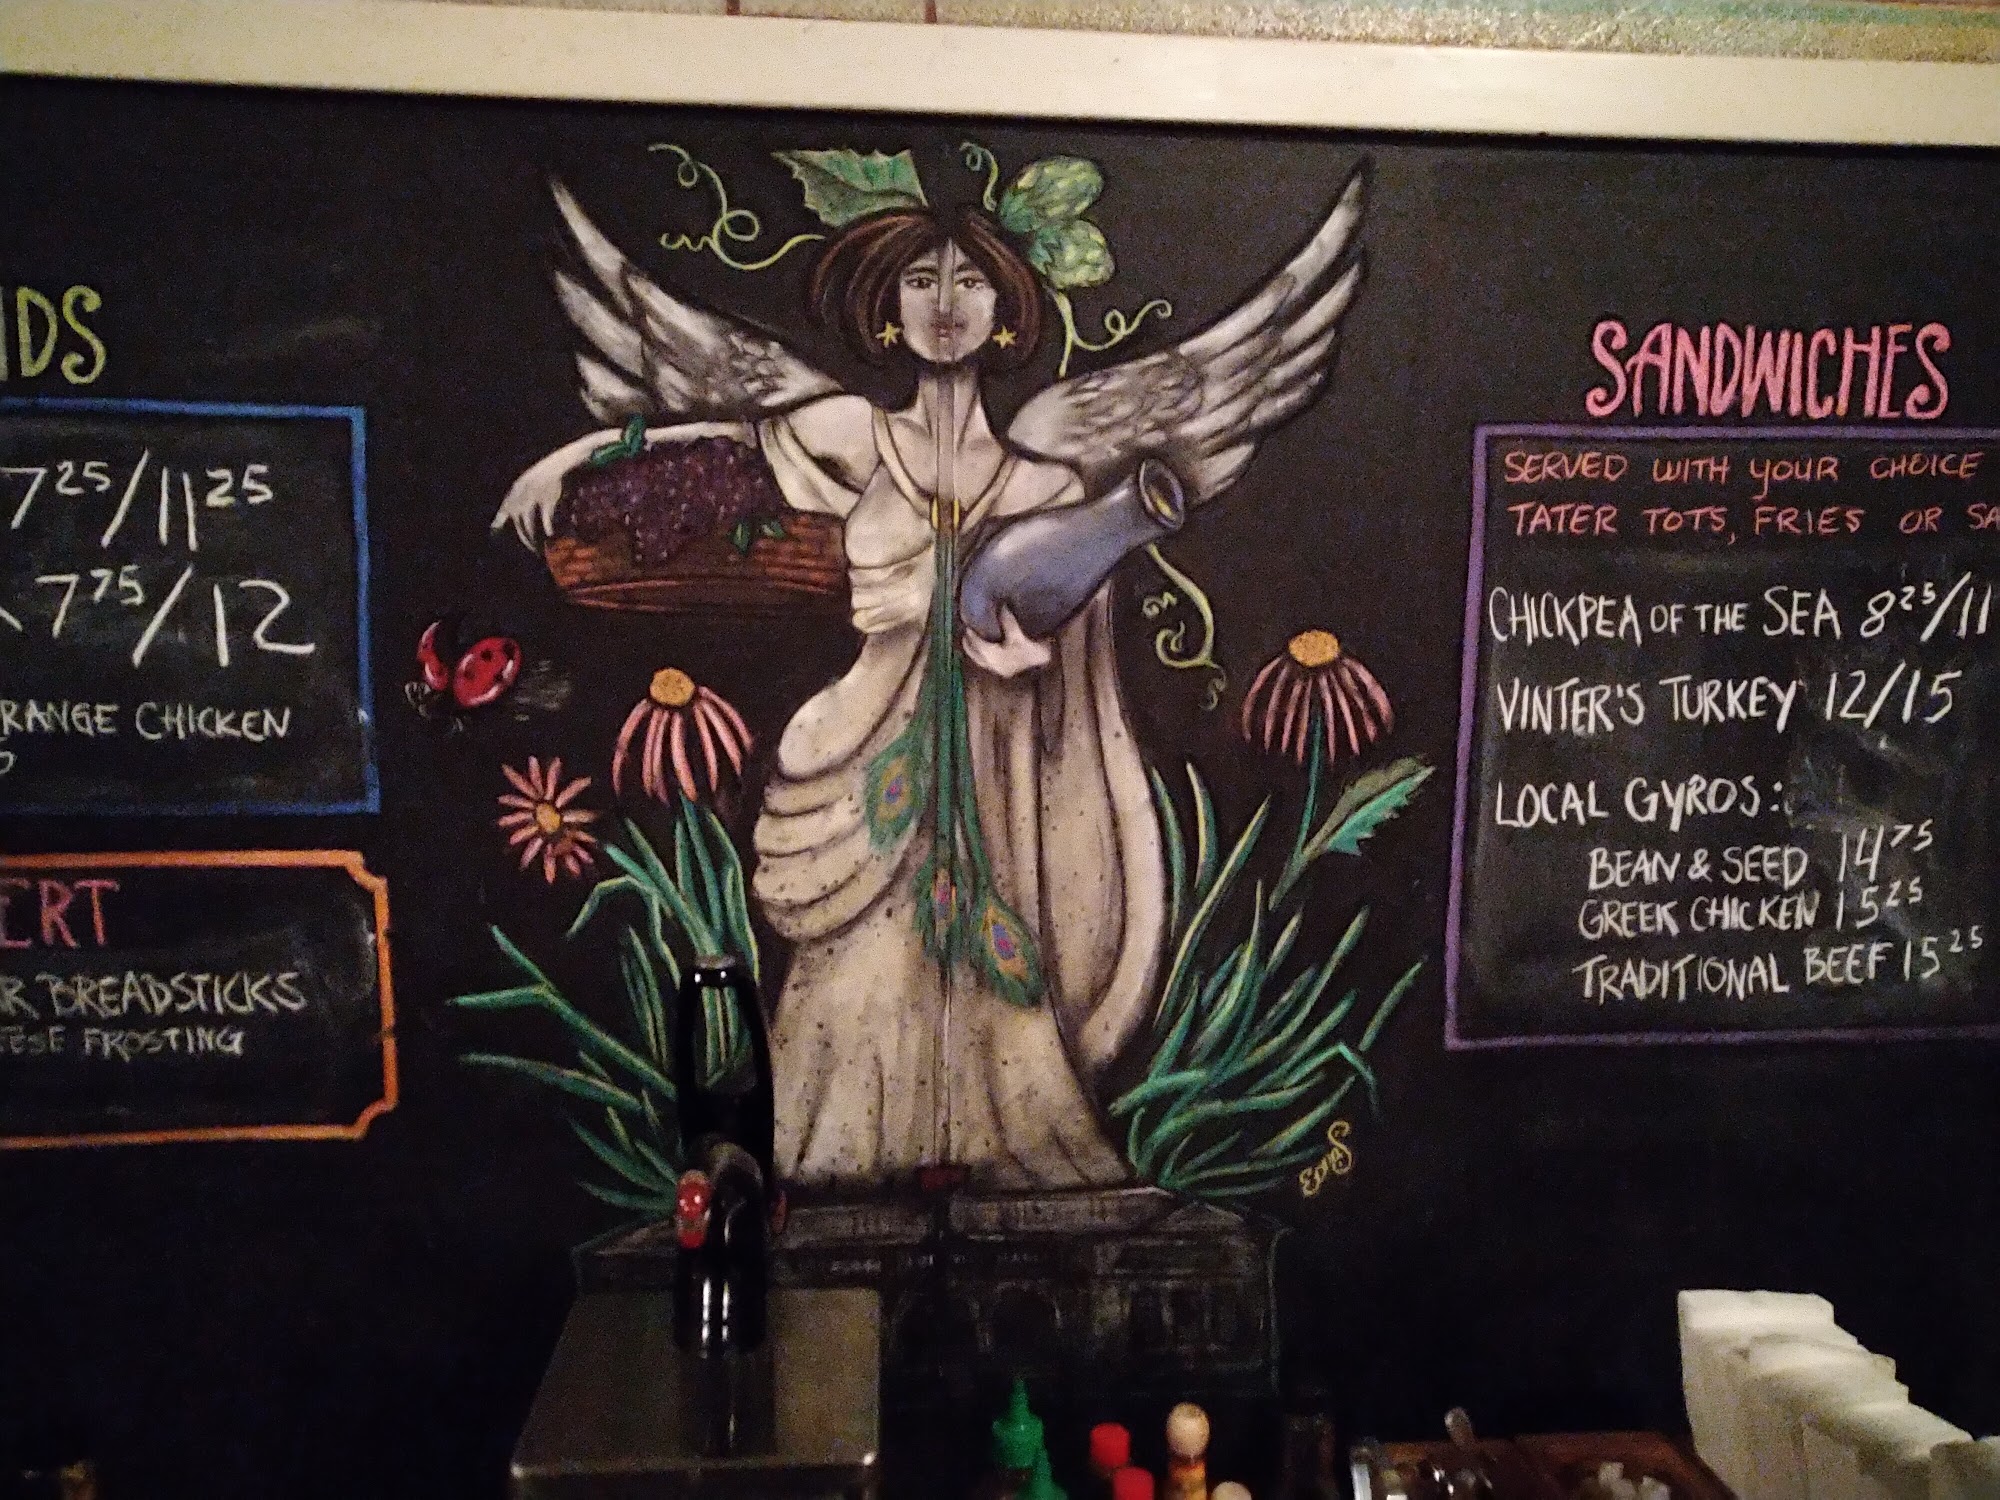 DS
7²⁵/11²⁵
7⁷⁵/12
RANGE CHICKEN
ERT
R BREADSTICKS
ESE FROSTING
SANDWICHES
SERVED WITH YOUR CHOICE
TATER TOTS, FRIES OR SA
CHICKPEA OF THE SEA 8²⁵/11
VINTER'S TURKEY 12/15
LOCAL GYROS:
BEAN & SEED 14⁷⁵
GREEK CHICKEN 15²⁵
TRADITIONAL BEEF 15²⁵